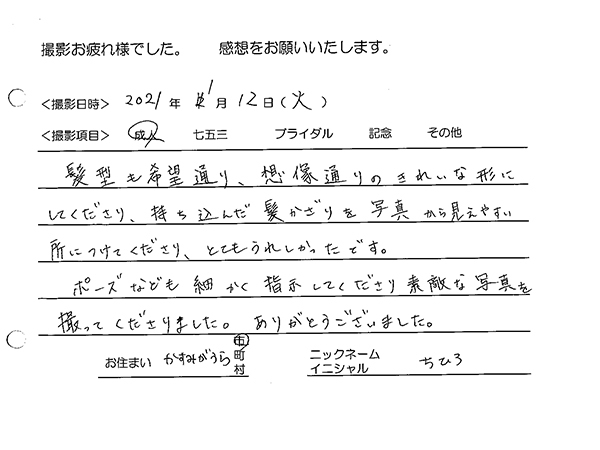 撮影お疲れ様でした。 感想をお願いいたします。
＜撮影日時＞ 2021年 1月 12日(火)
＜撮影項目＞ 成人 七五三 ブライダル 記念 その他
髪型も希望通り、想像通りのきれいな形に
してくださり、持ち込んだ髪かざりを写真から見えやすい
所につけてくださり、とてもうれしかったです。
ポーズなども細かく指示してくださり素敵な写真を
撮ってくださりました。ありがとうございました。
お住まい かすみがうら 市町村 ニックネーム イニシャル ちひろ